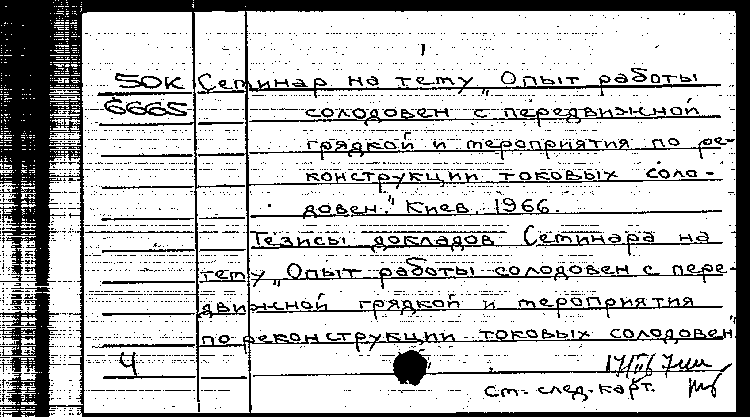 50К Семинар на тему „Опыт работы
6665 солодовен с передвижной
грядкой и мероприятия по ре-
конструкции токовых соло-
довен." Киев, 1966.
Тезисы докладов Семинара на
тему „Опыт работы солодовен с пере-
движной грядкой и мероприятия
по реконструкции токовых солодовен"
Ч
См. след. карт.